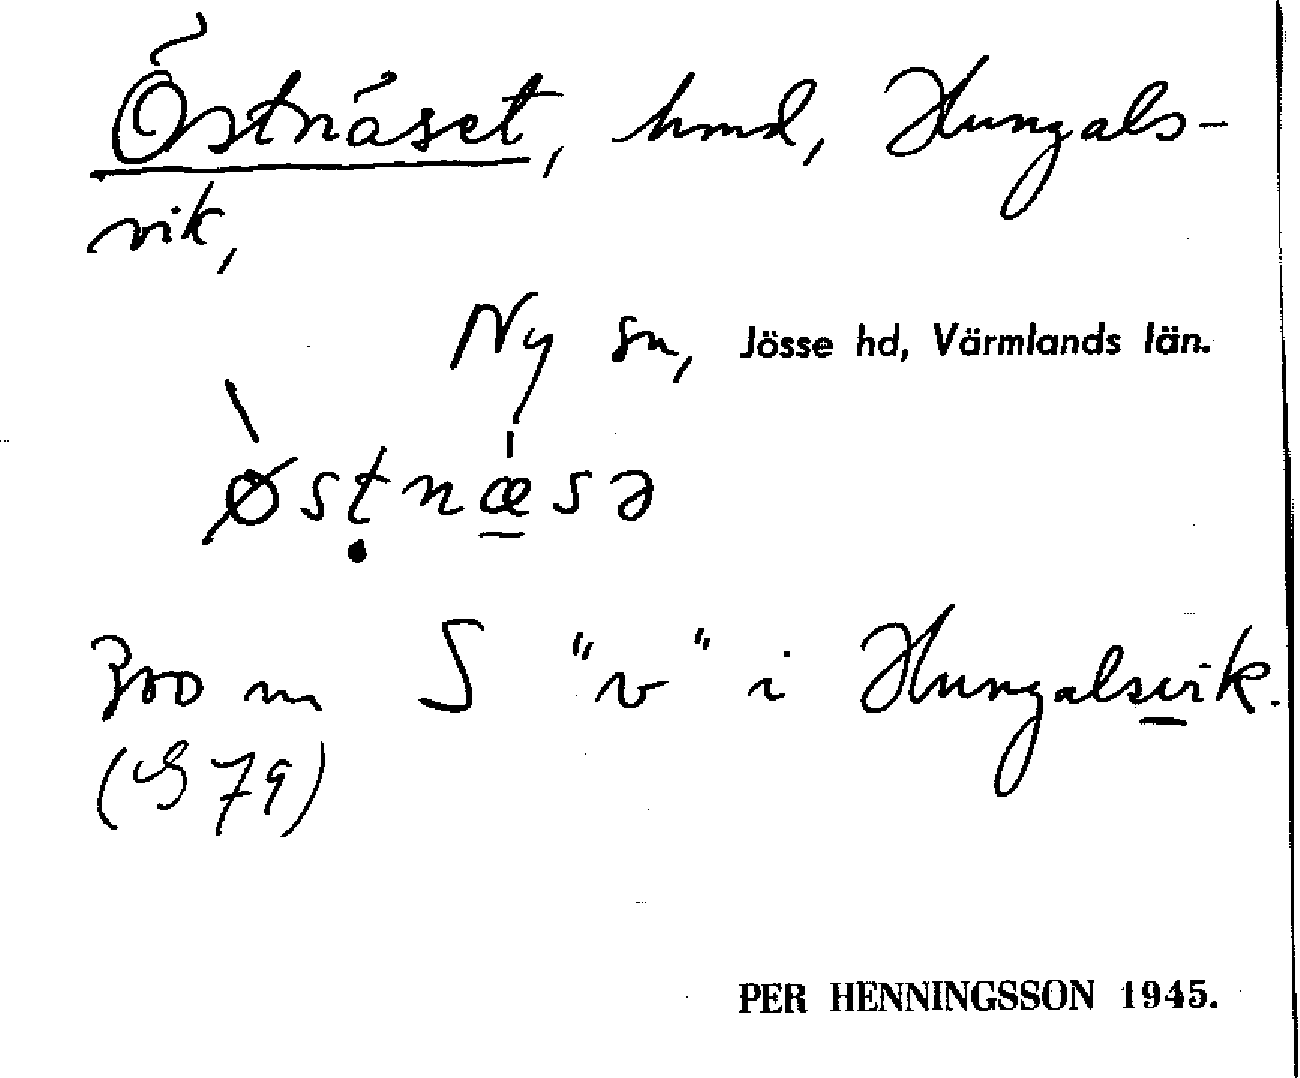 Östnäset, hmd, Hungals-
vik,
Ny sn, Jösse hd, Värmlands län.
`øsṭnæ̱̍sə
300 m S "v" i Hungalsv̲ik.
(S 79)
PER HENNINGSSON 1945.